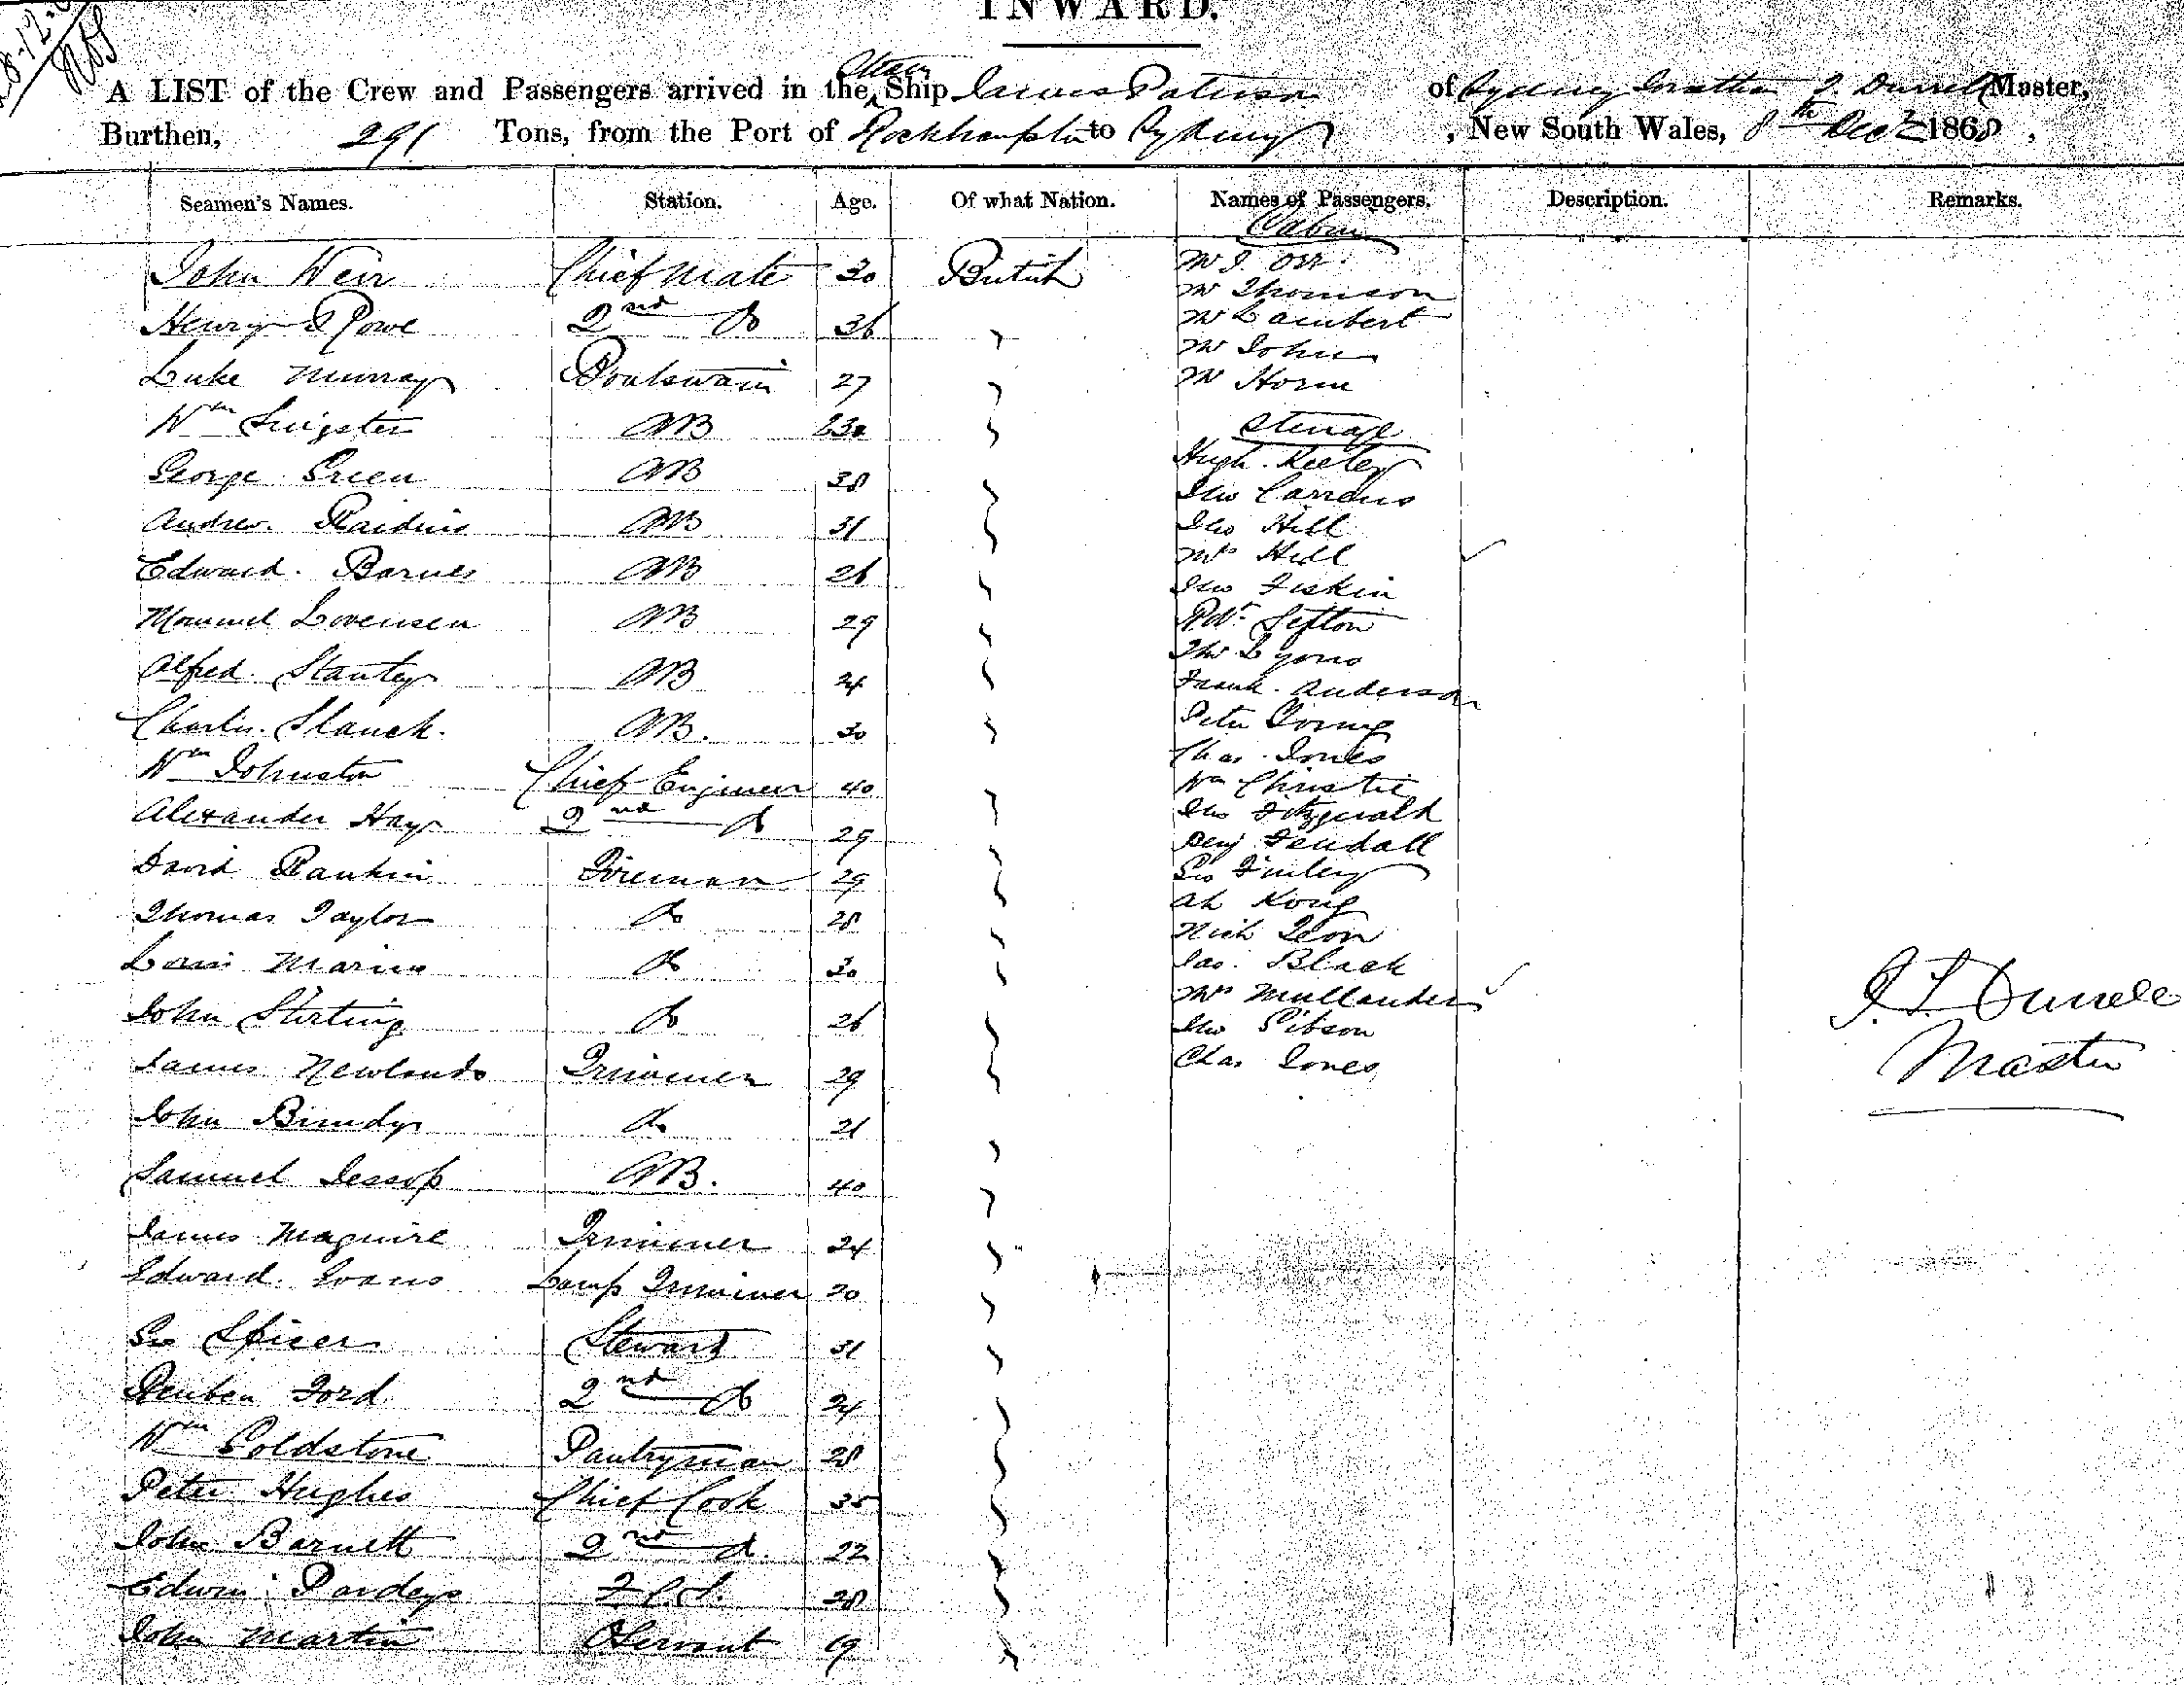 INWARD.
A LIST of the Crew and Passengers arrived in the Steam Ship James Paterson of Sydney T. Durrell Master,
Burthen, 291 Tons, from the Port of Rockhampton to Sydney, New South Wales, 8th Decr 1868,
Seamen's Names. Station. Age. Of what Nation. Names of Passengers. Description. Remarks.
Cabin
John Weir Chief Mate 30 British Mr J. Orr
Mr Thomson
Henry Rowe 2nd Do 36 Mr Lambert
Mr John
Luke Murray Boatswain 27 Mr Horne
Wm AB 30 Steerage
George Green AB 38 Hugh Keeley
Jno
Andrew AB 31 Jno Hill
Mrs Hill
Edward Barnes AB 26 Jno Fiskin
Lorensen AB 29 Robt Sefton
Thos Lyons
Alfred Stanley AB 24 Frank Anderson
Charles AB. 30 Peter Young
Chas Jones
Wm Johnston Chief Engineer 40 Wm Christie
Alexander Hay 2nd Do 29 Jno Fitzgerald
Benj Fendall
David Rankin Fireman 29 Geo Finley
Ah Kong
Thomas Taylor Do 28 Nich Leon
Louis Marino Do 30 Jas. Black
Mrs Mullander
John Stirling Do 26 Jno Gibson
James Newlands Trimmer 29 Chas Jones
John Bundy Do 21
Samuel Jessop AB. 40
James Maguire Trimmer 24
Edward Evans Lamp Trimmer 20
Geo Spicer Steward 31
Reuben Ford 2nd Do 24
Wm Goldstone Pantryman 28
Peter Hughes Chief Cook 35
John Barnett 2nd Do 22
Edwin Pardey 28
John Martin Servant 19
Durrell
Master